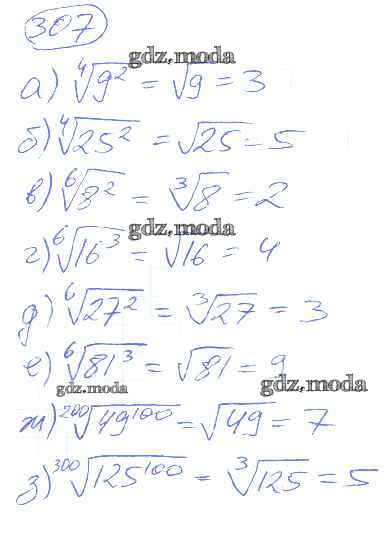 307
gdz.moda
а) ⁴√9² = √9 = 3
б) ⁴√25² = √25 = 5
в) ⁶√8² = ³√8 = 2
gdz.moda
г) ⁶√16³ = √16 = 4
д) ⁶√27² = ³√27 = 3
е) ⁶√81³ = √81 = 9
gdz.moda gdz.moda
ж) ²⁰⁰√49¹⁰⁰ = √49 = 7
з) ³⁰⁰√125¹⁰⁰ = ³√125 = 5